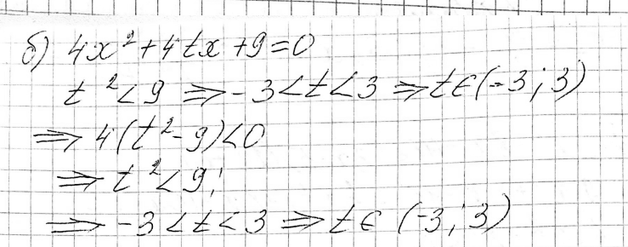 б) 4x² + 4tx + 9 = 0
t² < 9 ⇒ -3 < t < 3 ⇒ t ∈ (-3; 3)
⇒ 4(t² - 9) < 0
⇒ t² < 9;
⇒ -3 < t < 3 ⇒ t ∈ (-3; 3)